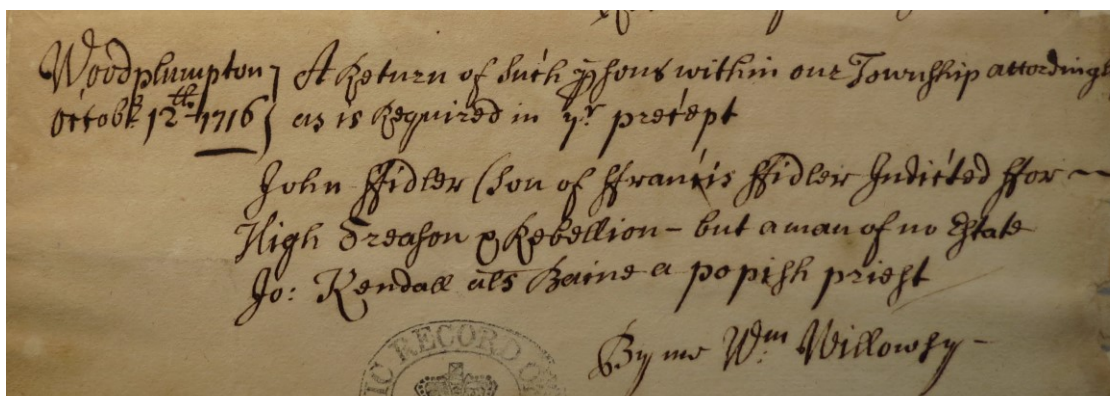 Woodplumpton } A Return of such psons within our Township according
Octobr. 12th. 1716 } as is Required in yr precept
John Ffidler (son of Ffrancis Ffidler Indicted ffor ~
High Treason & Rebellion - but a man of no Estate
Jo: Kendall als Baine a popish priest
By me Wm: Willowsy -
IC RECORD O